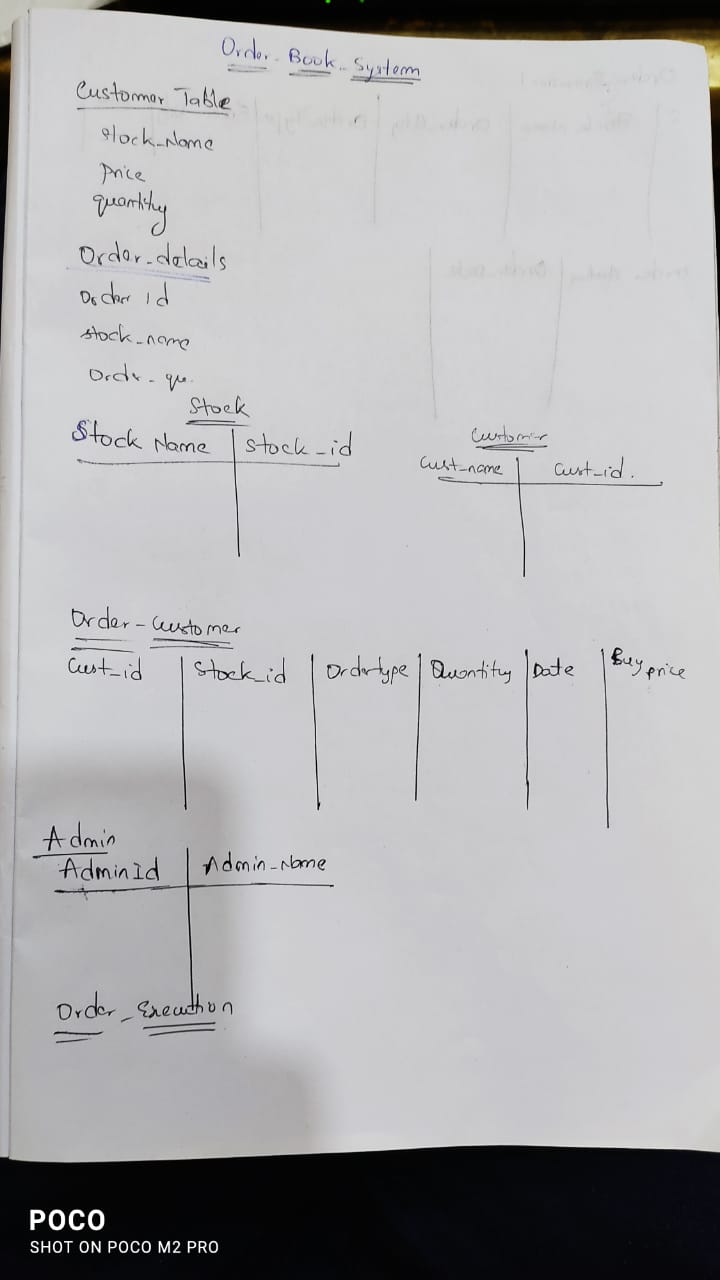 Order - Book - System
Customer Table
Stock_Name
Price
quantity
Order_details
Order id
stock_name
Order - qu.
Stock
Stock Name stock_id
Customer
Cust_name Cust_id.
Order - Customer
Cust_id Stock_id Ordertype Quantity Date Buy price
Admin
AdminId Admin_Name
Order_Execution
POCO
SHOT ON POCO M2 PRO